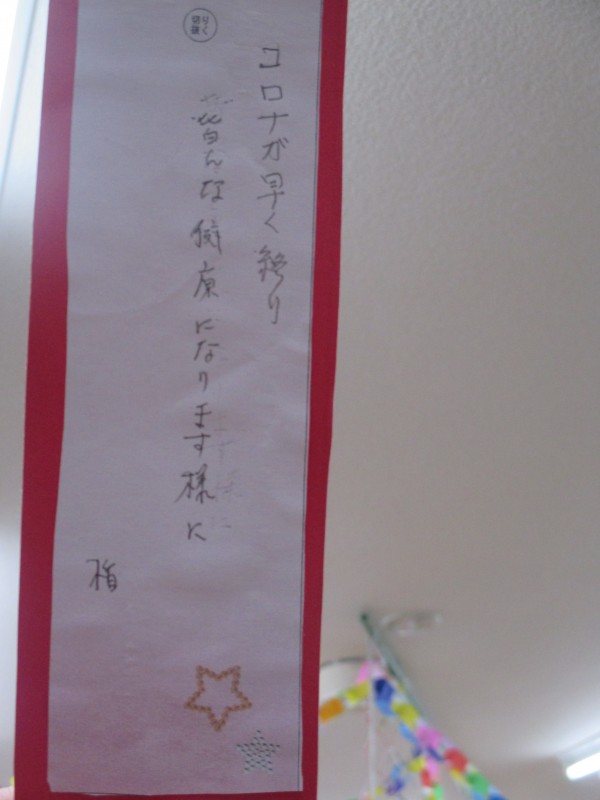 切り
抜く
コロナが早く終り
皆んな健康になります様に